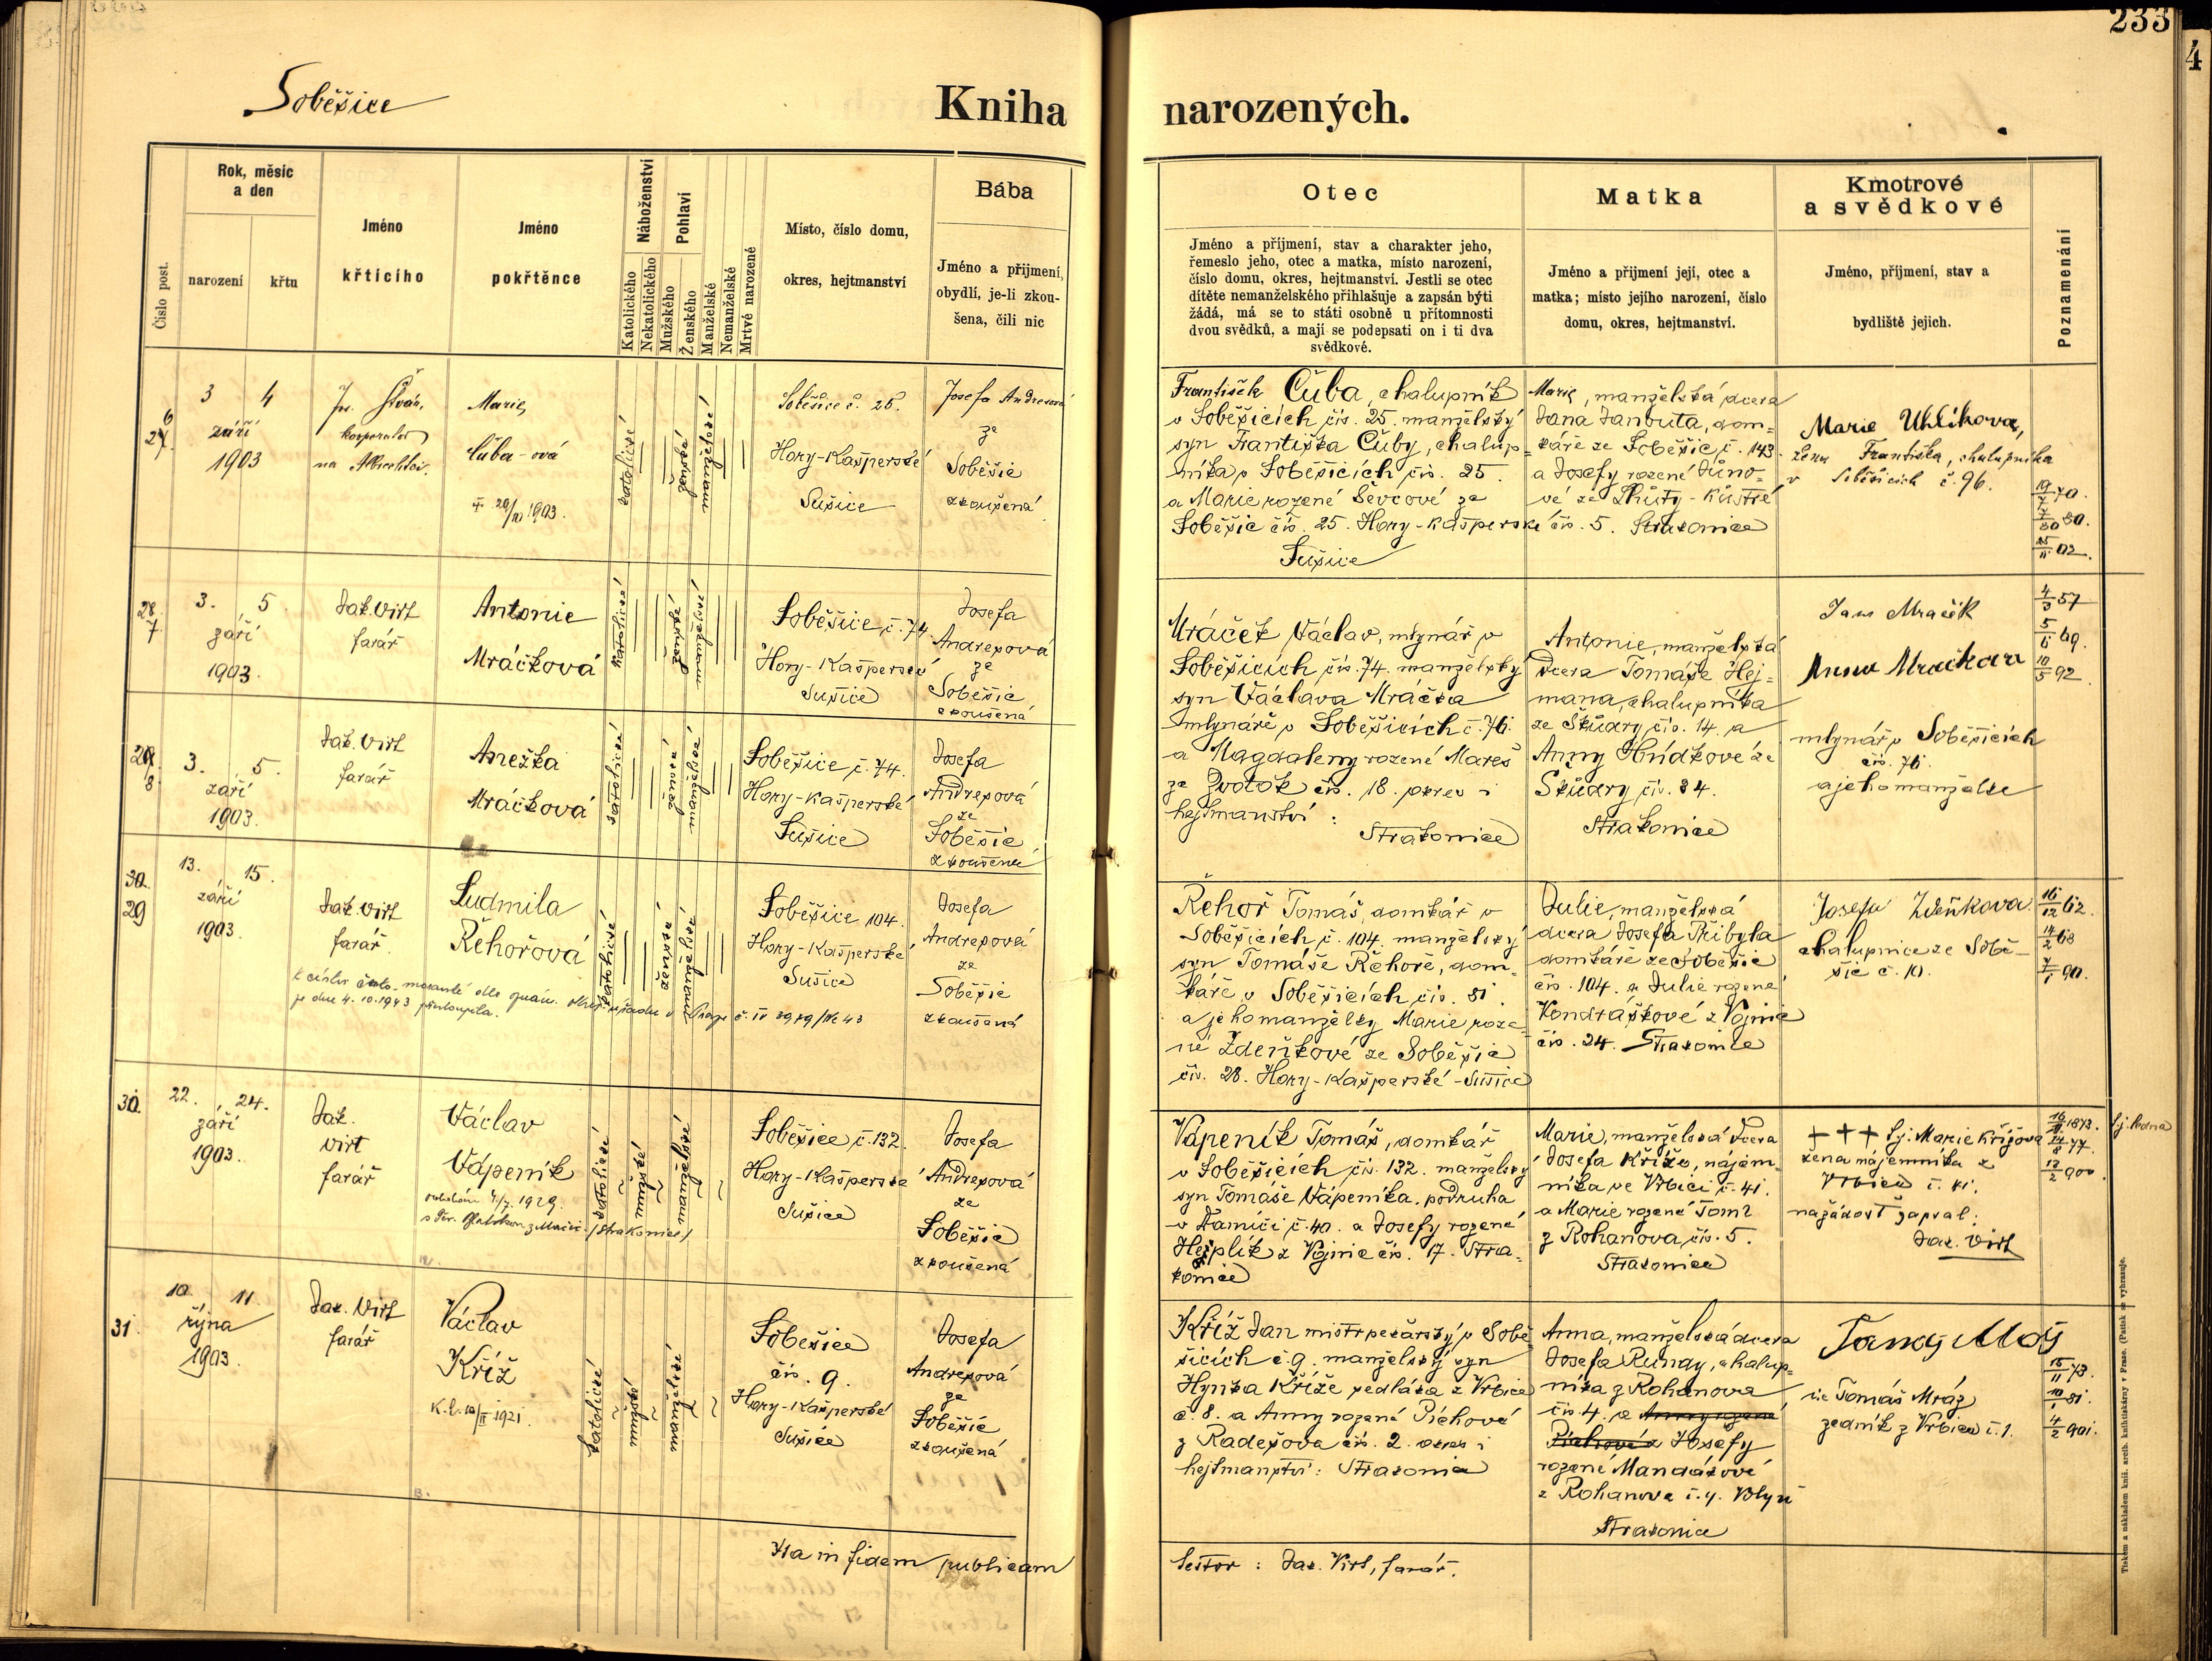 233
4
Soběšice
Kniha narozených.
Číslo post.
Rok, měsíc
a den
narození
křtu
Jméno
křtícího
Jméno
pokřtěnce
Náboženství
Katolického
Nekatolického
Pohlaví
Mužského
Ženského
Manželské
Nemanželské
Mrtvé narozené
Místo, číslo domu,
okres, hejtmanství
Bába
Jméno a přijmení,
obydlí, je-li zkou-
šena, čili nic
Otec
Jméno a příjmení, stav a charakter jeho,
řemeslo jeho, otec a matka, místo narození,
číslo domu, okres, hejtmanství. Jestli se otec
dítěte nemanželského přihlašuje a zapsán býti
žádá, má se to státi osobně u přítomnosti
dvou svědků, a mají se podepsati on i ti dva
svědkové.
Matka
Jméno a přijmení její, otec a
matka; místo jejího narození, číslo
domu, okres, hejtmanství.
Kmotrové
a svědkové
Jméno, příjmení, stav a
bydliště jejich.
Poznamenání
3 4
září
1903
kooperator
Marie
Čuba-ová
1903.
katolické
ženské
manželské
Soběšice č. 25.
Hory-Kašperské
Sušice
Josefa Andrexová
ze
Soběšic
zkoušená
František Čuba, chalupník
v Soběšicích čís. 25. manželský
syn Františka Čuby, chalup-
níka v Soběšicích čís. 25.
a Marie rozené Ševcové ze
Soběšic čís. 25. Hory-Kašperské
Sušice
Marie, manželská dcera
Jana Janbuta, dom-
káře ze Soběšic, č. 143.
a Josefy rozené
čís. 5. Strakonice
Marie Uhlíkova,
žena Františka, chalupníka
v Soběšicích č. 96.
19/7 70.
25/11 02.
28.
7.
3. 5.
září
1903.
Jak. Virt
farář
Antonie
Mráčková
katolické
ženské
manželské
Soběšice, č. 74
Hory-Kašperské
Sušice
Josefa
Andrexová
ze
Soběšic
zkoušená
Mráček Václav, mlynář v
Soběšicích čís. 74. manželský
syn Václava Mráčka
mlynáře v Soběšicích č. 76.
a Magdaleny rozené Mareš
ze Zvotok čís. 18. okres i
hejtmanství:
Strakonice
Antonie, manželská
dcera Tomáše Hej-
mana, chalupníka
ze Škůdry čís. 14. a
Anny Hůdkové ze
Škůdry čís. 34.
Strakonice
Jan Mraček
Anna Mračkova
mlynář v Soběšicích
čís. 76.
a jeho manželka
4/3 57
5/6 69.
10/5 92.
8.
3. 5.
září
1903.
Jak. Virt
farář
Anežka
Mráčková
katolické
ženské
manželské
Soběšice č. 74.
Hory-Kašperské
Sušice
Josefa
Andrexová
ze
Soběšic
zkoušená
30.
29
13. 15.
září
1903.
Jak. Virt
farář
Ludmila
Řehořová
katolické
ženské
manželské
Soběšice 104.
Hory-Kašperské
Sušice
Josefa
Andrexová
ze
Soběšic
zkoušená
K církvi česko-moravské dle oznám. okres. úřadu v Praze č. IV
je dne 4.10.1943 přistoupila.
Řehoř Tomáš, domkář v
Soběšicích, č. 104. manželský
syn Tomáše Řehoře, dom-
káře v Soběšicích čís. 81.
a jeho manželky Marie roze-
né Zdeňkové ze Soběšic
čís. 28. Hory-Kašperské-Sušice
Julie, manželská
dcera Josefa Přibyla
domkáře ze Soběšic
čís. 104. a Julie rozené
Kondráškové z Vojnic
čís. 24. Strakonice
Josefa Zdeňkova
chalupnice ze Sobě-
šic č. 10.
16/12 62.
14/2 68
7/1 90.
30.
22. 24.
září
1903.
Jak.
Virt
farář
Václav
Vápeník
1929.
katolické
mužské
manželské
Soběšice č. 132.
Hory-Kašperské
Sušice
Josefa
Andrexová
ze
Soběšic
zkoušená
Vápeník Tomáš, domkář
v Soběšicích čís. 132. manželský
syn Tomáše Vápeníka, podruha
v Damíči č. 40. a Josefy rozené
Heplík z Vojnic čís. 17. Stra-
konice
Marie, manželská dcera
Josefa Kříže, nájem-
níka ve Vrbici č. 41.
a Marie rozené Toml
z Rohanova, čís. 5.
Strakonice
+++ t.j. Marie Křížova
žena nájemníka z
Vrbice č. 41.
na žádost zapsal:
Jak. Virt
16/11 1873.
14/8 77.
12/2 900.
31.
10. 11.
října
1903.
Jak. Virt
farář
Václav
Kříž
katolické
mužské
manželské
Soběšice
čís. 9.
Hory-Kašperské
Sušice
Josefa
Andrexová
ze
Soběšic
zkoušená
Kříž Jan mistr pekařský v Sobě-
šicích č. 9. manželský syn
Hynka Kříže sedláka z Vrbice
č. 8. a Anny rozené Píchové
z Radešova čís. 2. okres i
hejtmanství: Strakonice
Anna, manželská dcera
Josefa Rundy, chalup-
níka z Rohanova
čís. 4. a Anny rozené
Píchové z Josefy
rozené Mandákové
z Rohanova č. 4. Volyň
Strakonice
t.j. Tomáš Mráz
zedník z Vrbice č. 1.
15/11 73.
10/1 81.
4/2 901.
Ita in fidem publicam
testor: Jak. Virt, farář.